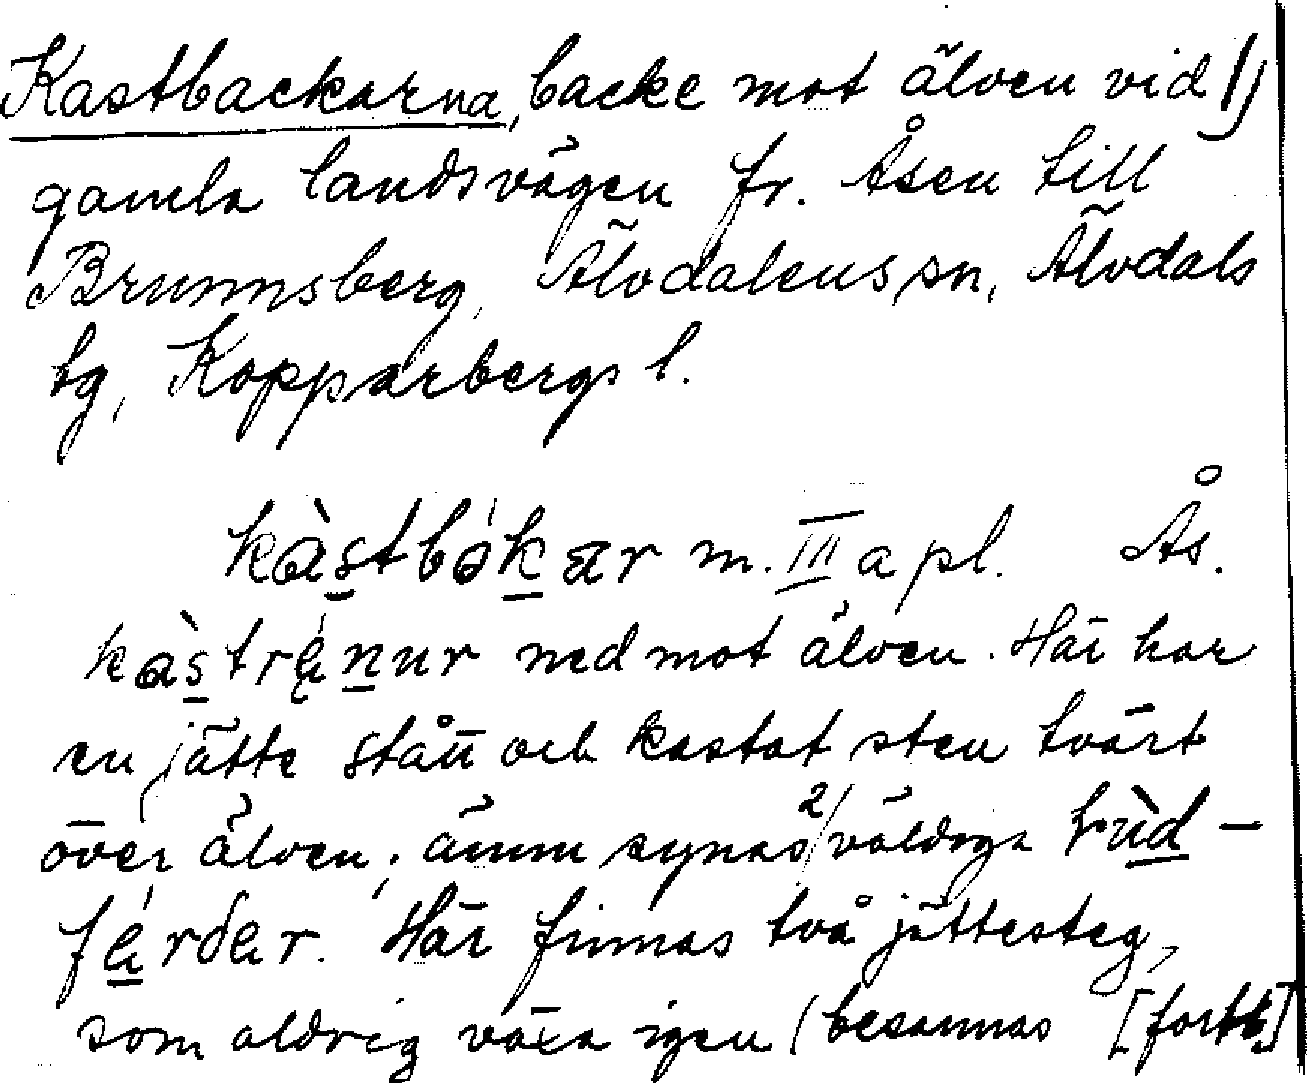 Kastbackarna, backe mot älven vid 1)
gamla landsvägen fr. Åsen till
Brunnsberg, Älvdalens sn, Älvdals
tg, Kopparbergs l.
kàstbákær m. III a pl. Ås.
kàstrę́nur ned mot älven. Här har
en jätte stått och kastat sten tvärt
över älven; ännu synas 2) väldiga trùd-
férðer. Här finnas två jättesteg,
som aldrig växa igen (besannas [forts.]